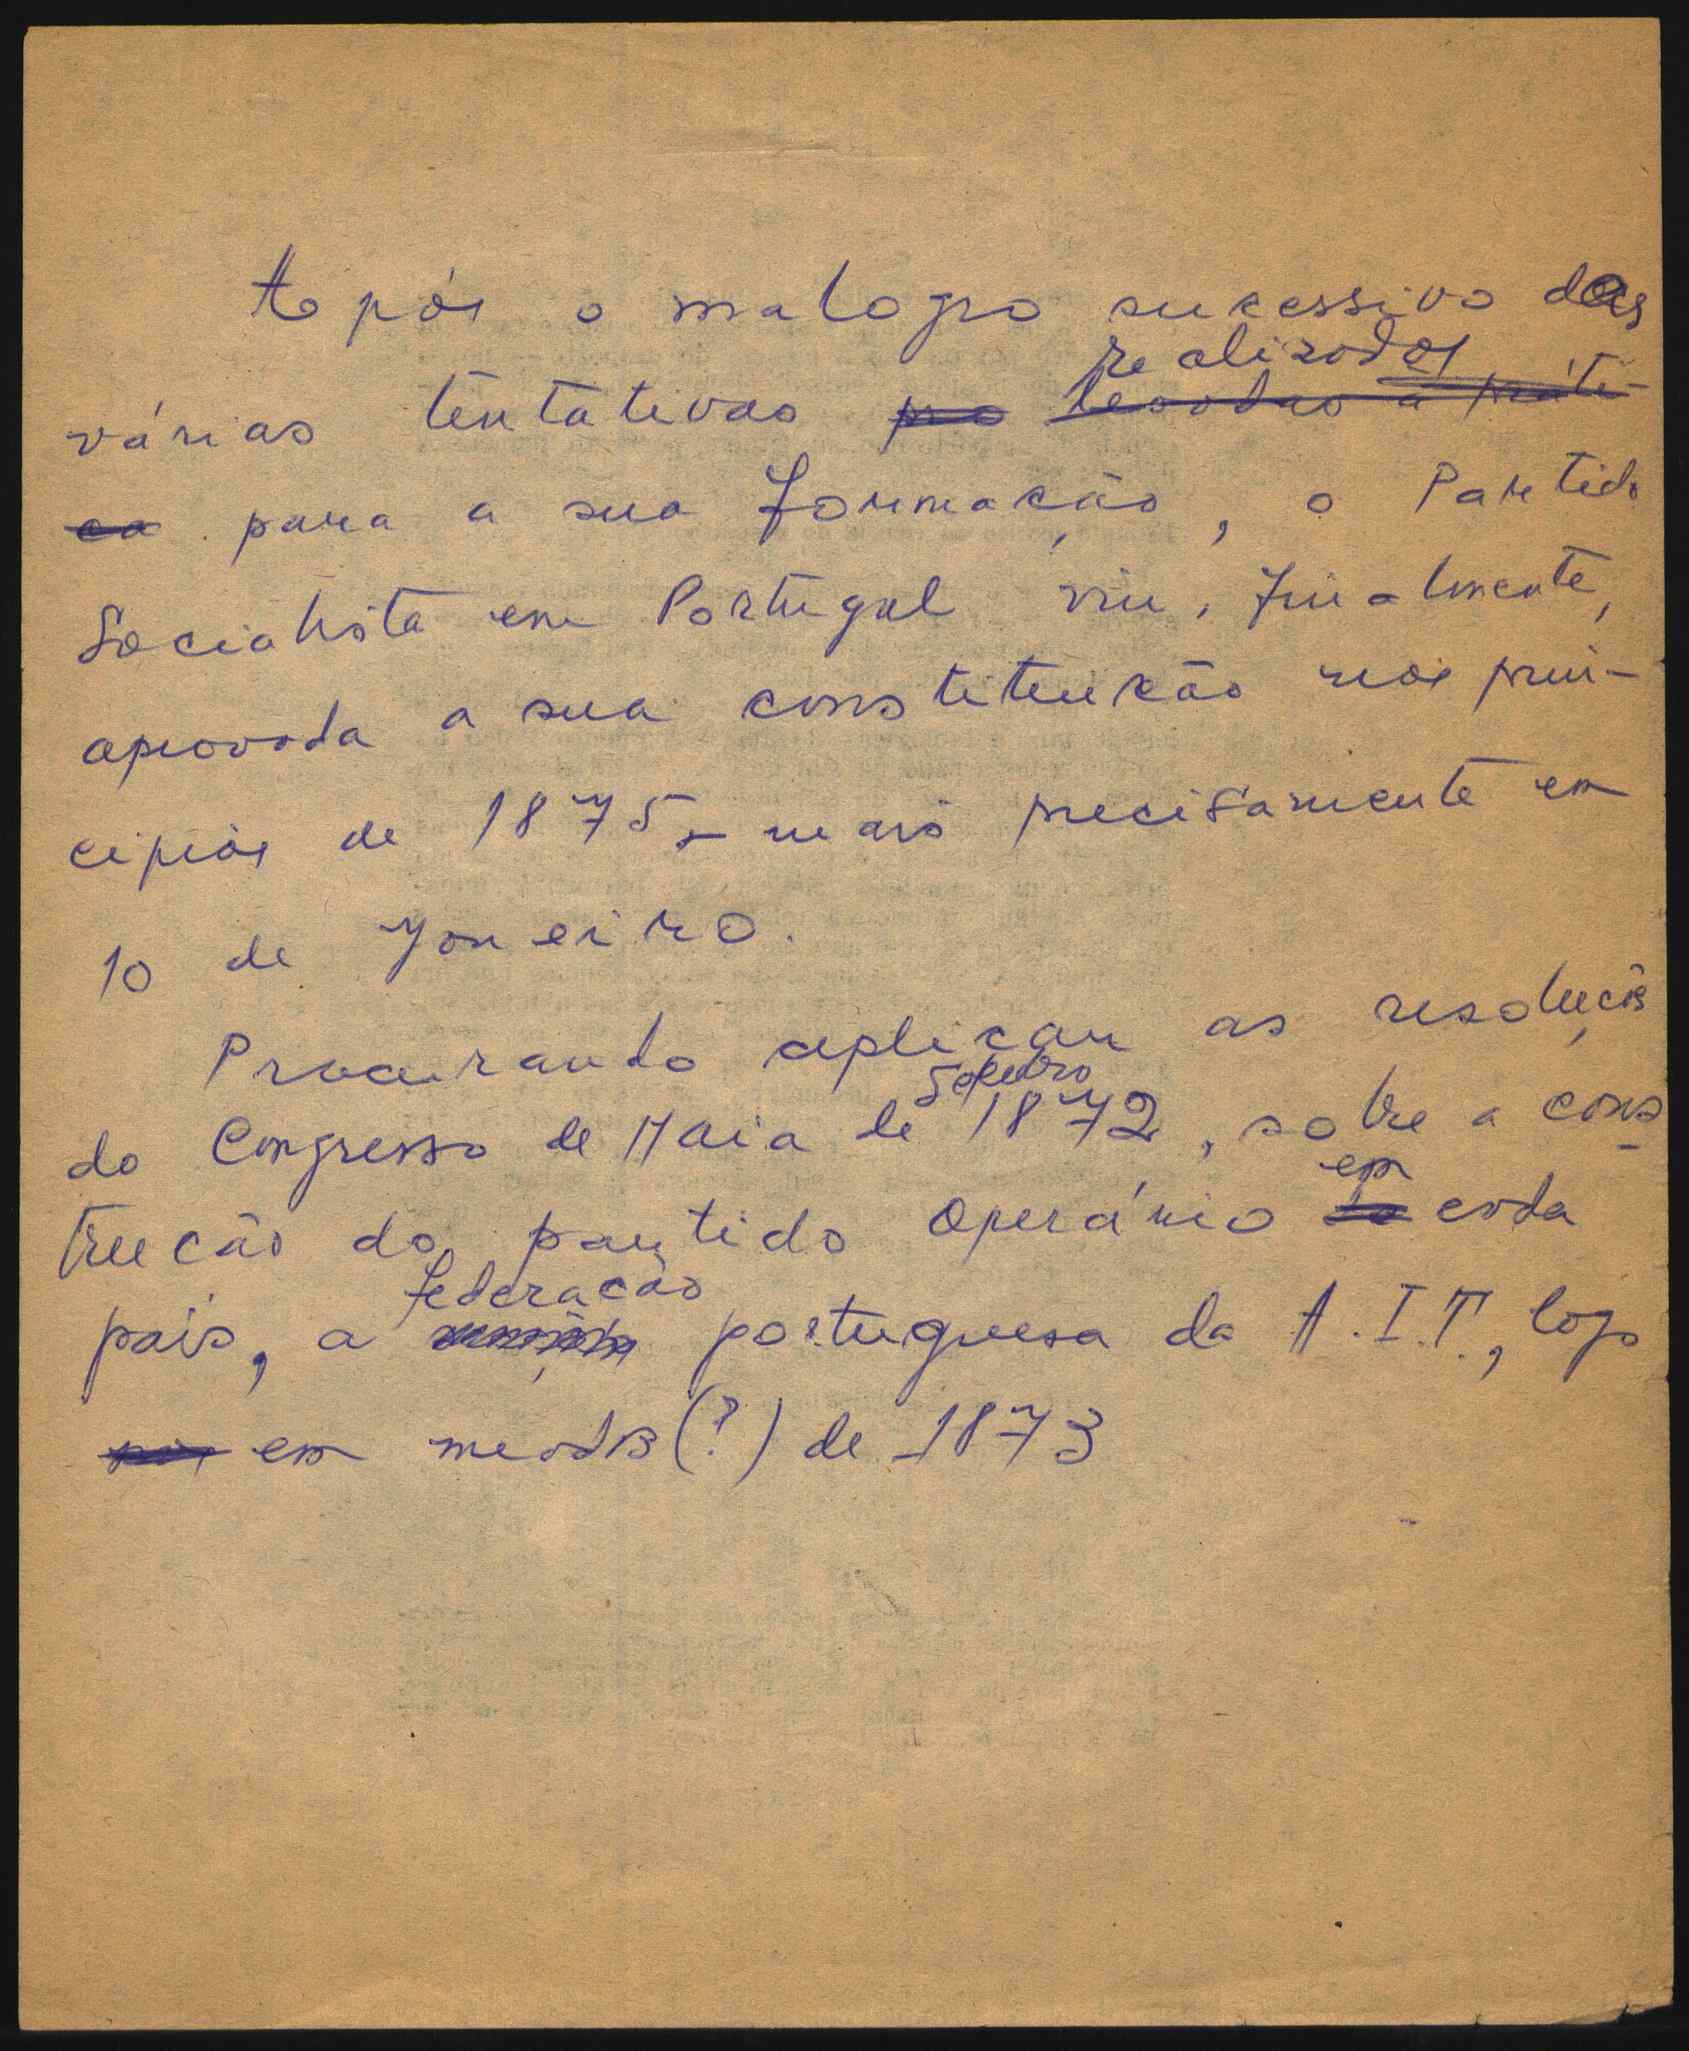 Após o malogro sucessivo das
realizadas
várias tentativas pro levadas à práti-
ca para a sua formação, o Partido
Socialista em Portugal viu, finalmente,
aprovada a sua constituição nos prin-
cipios de 1875 - mais precisamente em
10 de Janeiro.
Procurando aplicar as resoluções
Setembro
do Congresso de Haia de 1872, sobre a cons
em
trução do partido operário cada
federação
país, a portuguesa da A.I.T., logo
em meados (?) de 1873